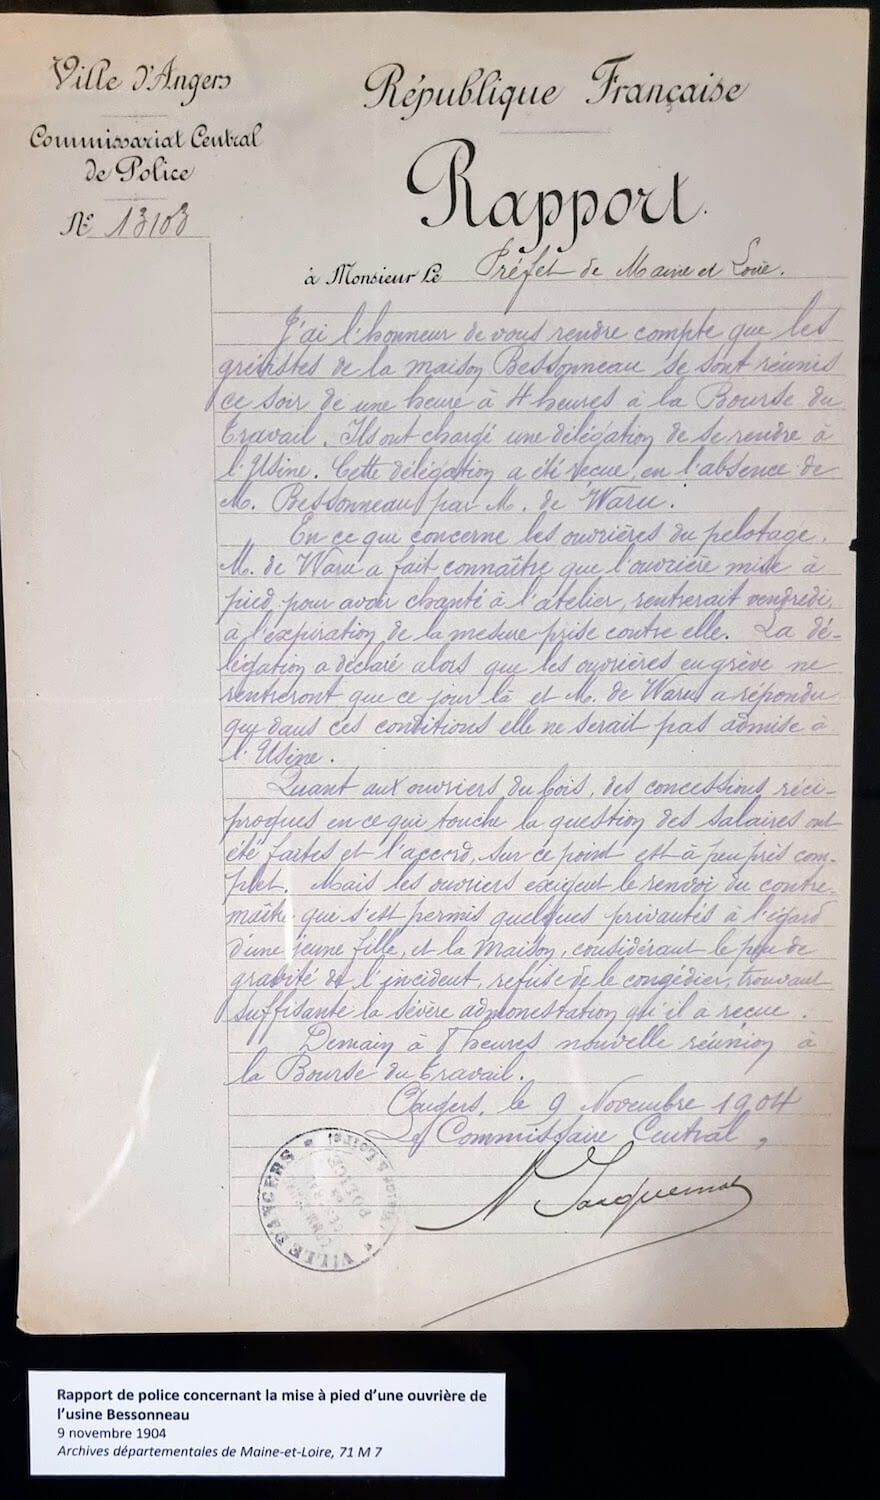 Ville d'Angers
Commissariat Central
de Police
N° 13103
République Française
Rapport
à Monsieur Le Préfet de Maine et Loire.
J'ai l'honneur de vous rendre compte que les
grévistes de la maison Bessonneau se sont réunis
ce soir de une heure à 4 heures à la Bourse du
Travail. Ils ont chargé une délégation de se rendre à
l'Usine. Cette délégation a été reçue, en l'absence de
M. Bessonneau par M. de Waru.
En ce qui concerne les ouvrières du pelotage,
M. de Waru a fait connaître que l'ouvrière mise à
pied, pour avoir chanté à l'atelier, rentrerait vendredi,
à l'expiration de la mesure prise contre elle. La dé-
légation a déclaré alors que les ouvrières en grève ne
rentreront que ce jour là et M. de Waru a répondu
que dans ces conditions elle ne serait pas admise à
l'Usine.
Quant aux ouvriers du bois, des concessions réci-
proques en ce qui touche la question des salaires ont
été faites et l'accord, sur ce point est à peu près com-
plet. Mais les ouvriers exigent le renvoi du contre-
maître qui s'est permis quelques privautés à l'égard
d'une jeune fille, et la Maison, considérant le peu de
gravité de l'incident, refuse de le congédier, trouvant
suffisante la sévère admonestation qu'il a reçue.
Demain à 8 heures nouvelle réunion à
la Bourse du Travail.
Angers, le 9 Novembre 1904
Le Commissaire Central,
VILLE D'ANGERS
POLICE
Rapport de police concernant la mise à pied d'une ouvrière de
l'usine Bessonneau
9 novembre 1904
Archives départementales de Maine-et-Loire, 71 M 7